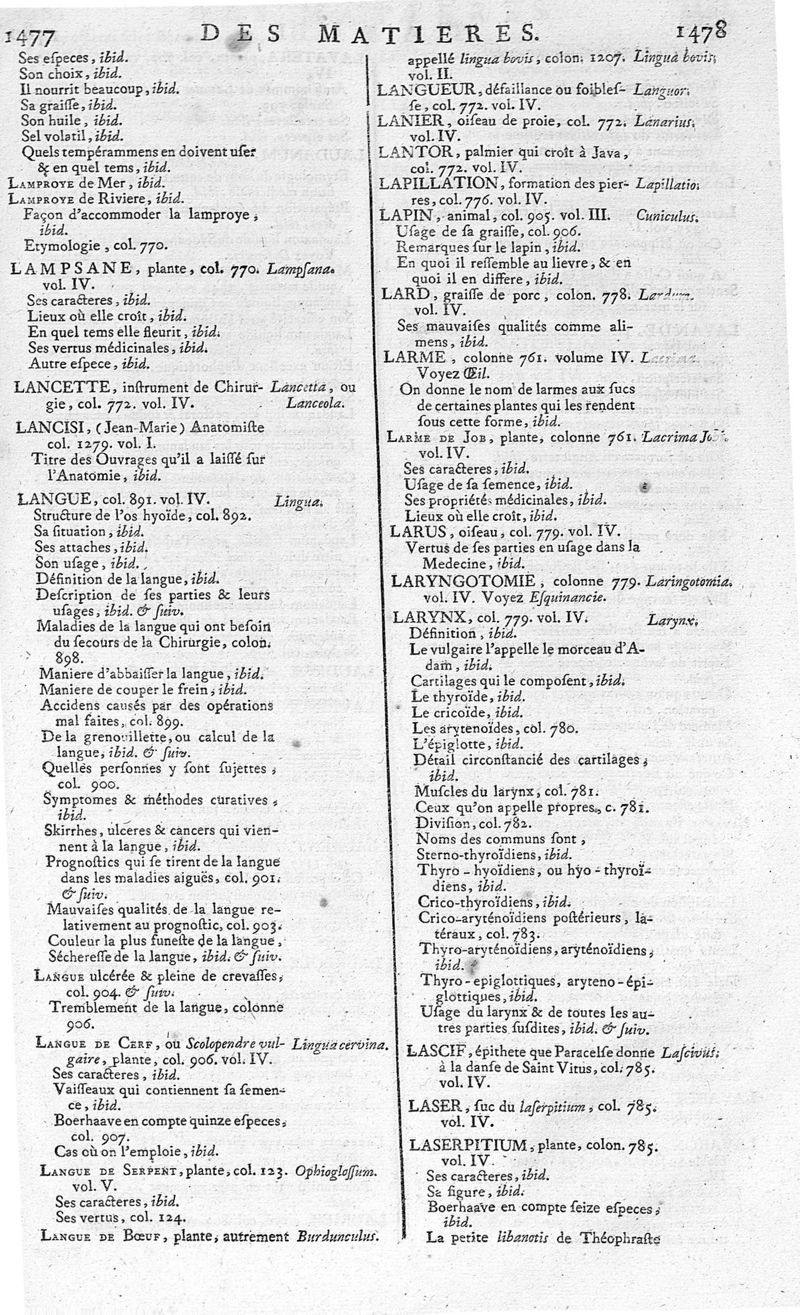 1477
DES MATIERES.
1478
Ses eſpeces, ibid.
Son choix, ibid.
Il nourrit beaucoup, ibid.
Sa graiſſe, ibid.
Son huile, ibid.
Sel volatil, ibid.
Quels tempérammens en doivent uſer
& en quel tems, ibid.
LAMPROYE de Mer, ibid.
LAMPROYE de Riviere, ibid.
Façon d'accommoder la lamproye,
ibid.
Etymologie, col. 770.
LAMPSANE, plante, col. 770. Lampſana.
vol. IV.
Ses caracteres, ibid.
Lieux où elle croît, ibid.
En quel tems elle fleurit, ibid.
Ses vertus médicinales, ibid.
Autre eſpece, ibid.
LANCETTE, inſtrument de Chirur- Lancetta, ou
gie, col. 772. vol. IV. Lanceola.
LANCISI, (Jean-Marie) Anatomiſte
col. 1279. vol. I.
Titre des Ouvrages qu'il a laiſſé ſur
l'Anatomie, ibid.
LANGUE, col. 891. vol. IV. Lingua.
Structure de l'os hyoïde, col. 892.
Sa ſituation, ibid.
Ses attaches, ibid.
Son uſage, ibid.
Définition de la langue, ibid.
Deſcription de ſes parties & leurs
uſages, ibid. & ſuiv.
Maladies de la langue qui ont beſoin
du ſecours de la Chirurgie, colon.
898.
Maniere d'abbaiſſer la langue, ibid.
Maniere de couper le frein, ibid.
Accidens cauſés par des opérations
mal faites, col. 899.
De la grenouillette, ou calcul de la
langue, ibid. & ſuiv.
Quelles perſonnes y ſont ſujettes,
col. 900.
Symptomes & méthodes curatives,
ibid.
Skirrhes, ulceres & cancers qui vien-
nent à la langue, ibid.
Prognoſtics qui ſe tirent de la langue
dans les maladies aiguës, col. 901.
& ſuiv.
Mauvaiſes qualités de la langue re-
lativement au prognoſtic, col. 903.
Couleur la plus funeſte de la langue,
Séchereſſe de la langue, ibid. & ſuiv.
LANGUE ulcérée & pleine de crevaſſes,
col. 904. & ſuiv.
Tremblement de la langue, colonne
906.
LANGUE DE CERF, ou Scolopendre vul- Lingua cervina.
gaire, plante, col. 906. vol. IV.
Ses caracteres, ibid.
Vaiſſeaux qui contiennent ſa ſemen-
ce, ibid.
Boerhaave en compte quinze eſpeces,
col. 907.
Cas où on l'emploie, ibid.
LANGUE DE SERPENT, plante, col. 123. Ophiogloſſum.
vol. V.
Ses caracteres, ibid.
Ses vertus, col. 124.
LANGUE DE BŒUF, plante, autrement Burdunculus.
appellé lingua bovis, colon. 1207. Lingua bovis,
vol. II.
LANGUEUR, défaillance ou foibleſ- Languor.
ſe, col. 772. vol. IV.
LANIER, oiſeau de proie, col. 772. Lanarius.
vol. IV.
LANTOR, palmier qui croît à Java,
col. 772. vol. IV.
LAPILLATION, formation des pier- Lapillatio.
res, col. 776. vol. IV.
LAPIN, animal, col. 905. vol. III. Cuniculus.
Uſage de ſa graiſſe, col. 906.
Remarques ſur le lapin, ibid.
En quoi il reſſemble au lievre, & en
quoi il en differe, ibid.
LARD, graiſſe de porc, colon. 778. Lardum.
vol. IV.
Ses mauvaiſes qualités comme ali-
mens, ibid.
LARME, colonne 761. volume IV. Lacrima.
Voyez Œil.
On donne le nom de larmes aux ſucs
de certaines plantes qui les rendent
ſous cette forme, ibid.
LARME DE JOB, plante, colonne 761. Lacrima Jobi.
vol. IV.
Ses caracteres, ibid.
Uſage de ſa ſemence, ibid.
Ses propriétés médicinales, ibid.
Lieux où elle croît, ibid.
LARUS, oiſeau, col. 779. vol. IV.
Vertus de ſes parties en uſage dans la
Medecine, ibid.
LARYNGOTOMIE, colonne 779. Laringotomia.
vol. IV. Voyez Eſquinancie.
LARYNX, col. 779. vol. IV. Larynx.
Définition, ibid.
Le vulgaire l'appelle le morceau d'A-
dam, ibid.
Cartilages qui le compoſent, ibid.
Le thyroïde, ibid.
Le cricoïde, ibid.
Les arytenoïdes, col. 780.
L'épiglotte, ibid.
Détail circonſtancié des cartilages,
ibid.
Muſcles du larynx, col. 781.
Ceux qu'on appelle propres, c. 781.
Diviſion, col. 782.
Noms des communs ſont,
Sterno-thyroïdiens, ibid.
Thyro-hyoïdiens, ou hyo-thyroï-
diens, ibid.
Crico-thyroïdiens, ibid.
Crico-aryténoïdiens poſtérieurs, la-
téraux, col. 783.
Thyro-aryténoïdiens, aryténoïdiens,
ibid.
Thyro-epiglottiques, aryteno-épi-
glottiques, ibid.
Uſage du larynx & de toutes les au-
tres parties ſuſdites, ibid. & ſuiv.
LASCIF, épithete que Paracelſe donne Laſcivus.
à la danſe de Saint Vitus, col. 785.
vol. IV.
LASER, ſuc du laſerpitium, col. 785.
vol. IV.
LASERPITIUM, plante, colon. 785.
vol. IV.
Ses caracteres, ibid.
Sa figure, ibid.
Boerhaave en compte ſeize eſpeces,
ibid.
La petite libanotis de Théophraſte